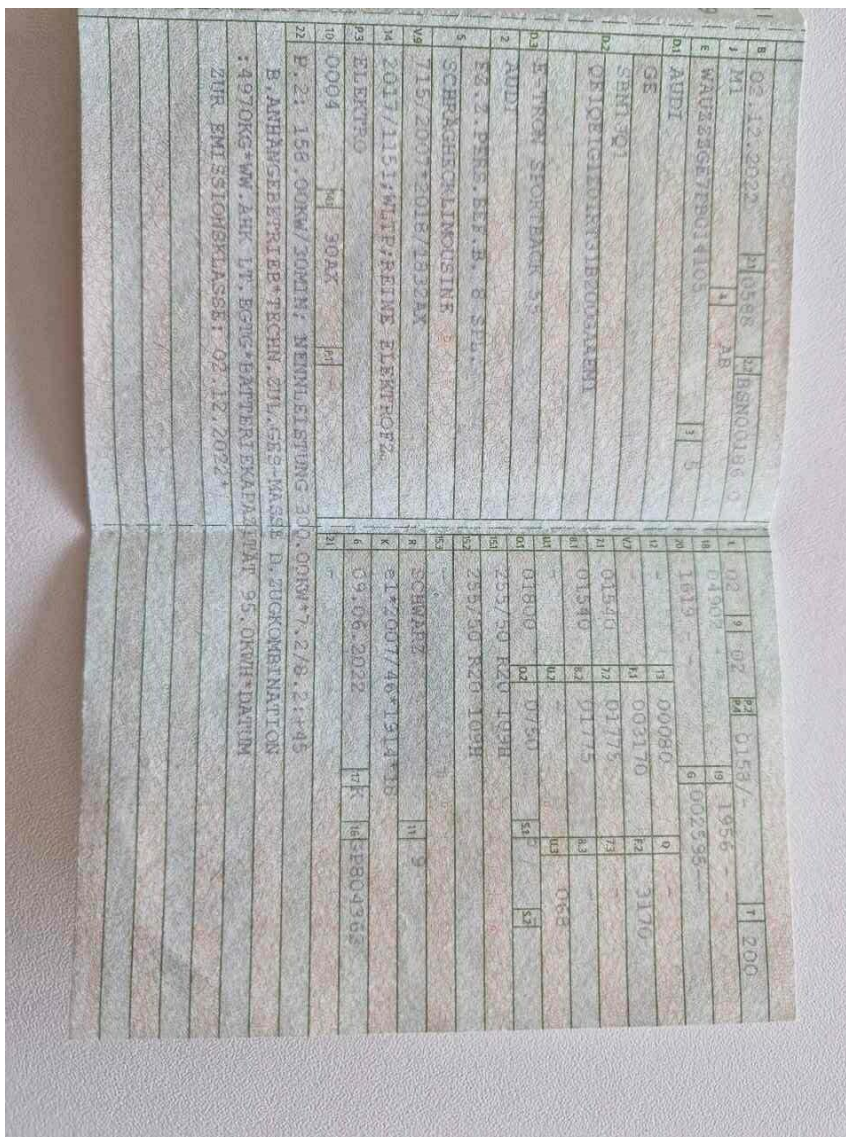 B 02.12.2022 2.1 0588 2.2 BSN00186 0
J M1 4 AB
E WAUZZZGE7PB014105 3 5
D.1 AUDI
D.2 GE
SBM1SQ1
D.3 E-TRON SPORTBACK 55
2 AUDI
5 FZ.Z.PERS.BEF.B. 8 SPL.
SCHRÄGHECKLIMOUSINE
V.9 715/2007*2018/1832AX
14 2017/1151;WLTP;REINE ELEKTROFZ.
P.3 ELEKTRO
10 0004 14.1 30AX P.1 -
22 P.2: 158.00KW/30MIN; NENNLEISTUNG 300.00KW*7.2/8.2:+45
B.ANHÄNGEBETRIEB*TECHN.ZUL.GES-MASSE D.ZUGKOMBINATION
:4970KG*WW.AHK LT.EGTG*BATTERIEKAPAZITÄT 95.0KWH*DATUM
ZUR EMISSIONSKLASSE: 02.12.2022*
L 02 9 02 P.2 P.4 0158/- T 200
18 04902 - 19 1956 - -
20 1619 - - G 002595-
12 - 13 00080 Q -
V.7 - F.1 003170 F.2 3170
7.1 01540 7.2 01775 7.3 -
8.1 01540 8.2 01775 8.3 -
U.1 - U.2 - U.3 068
O.1 01800 O.2 0750 S.1 S.2
15.1 255/50 R20 109H
15.2 255/50 R20 109H
15.3 -
R SCHWARZ 11 9
K e1*2007/46*1914*
6 09.06.2022 17 K 16
21 -